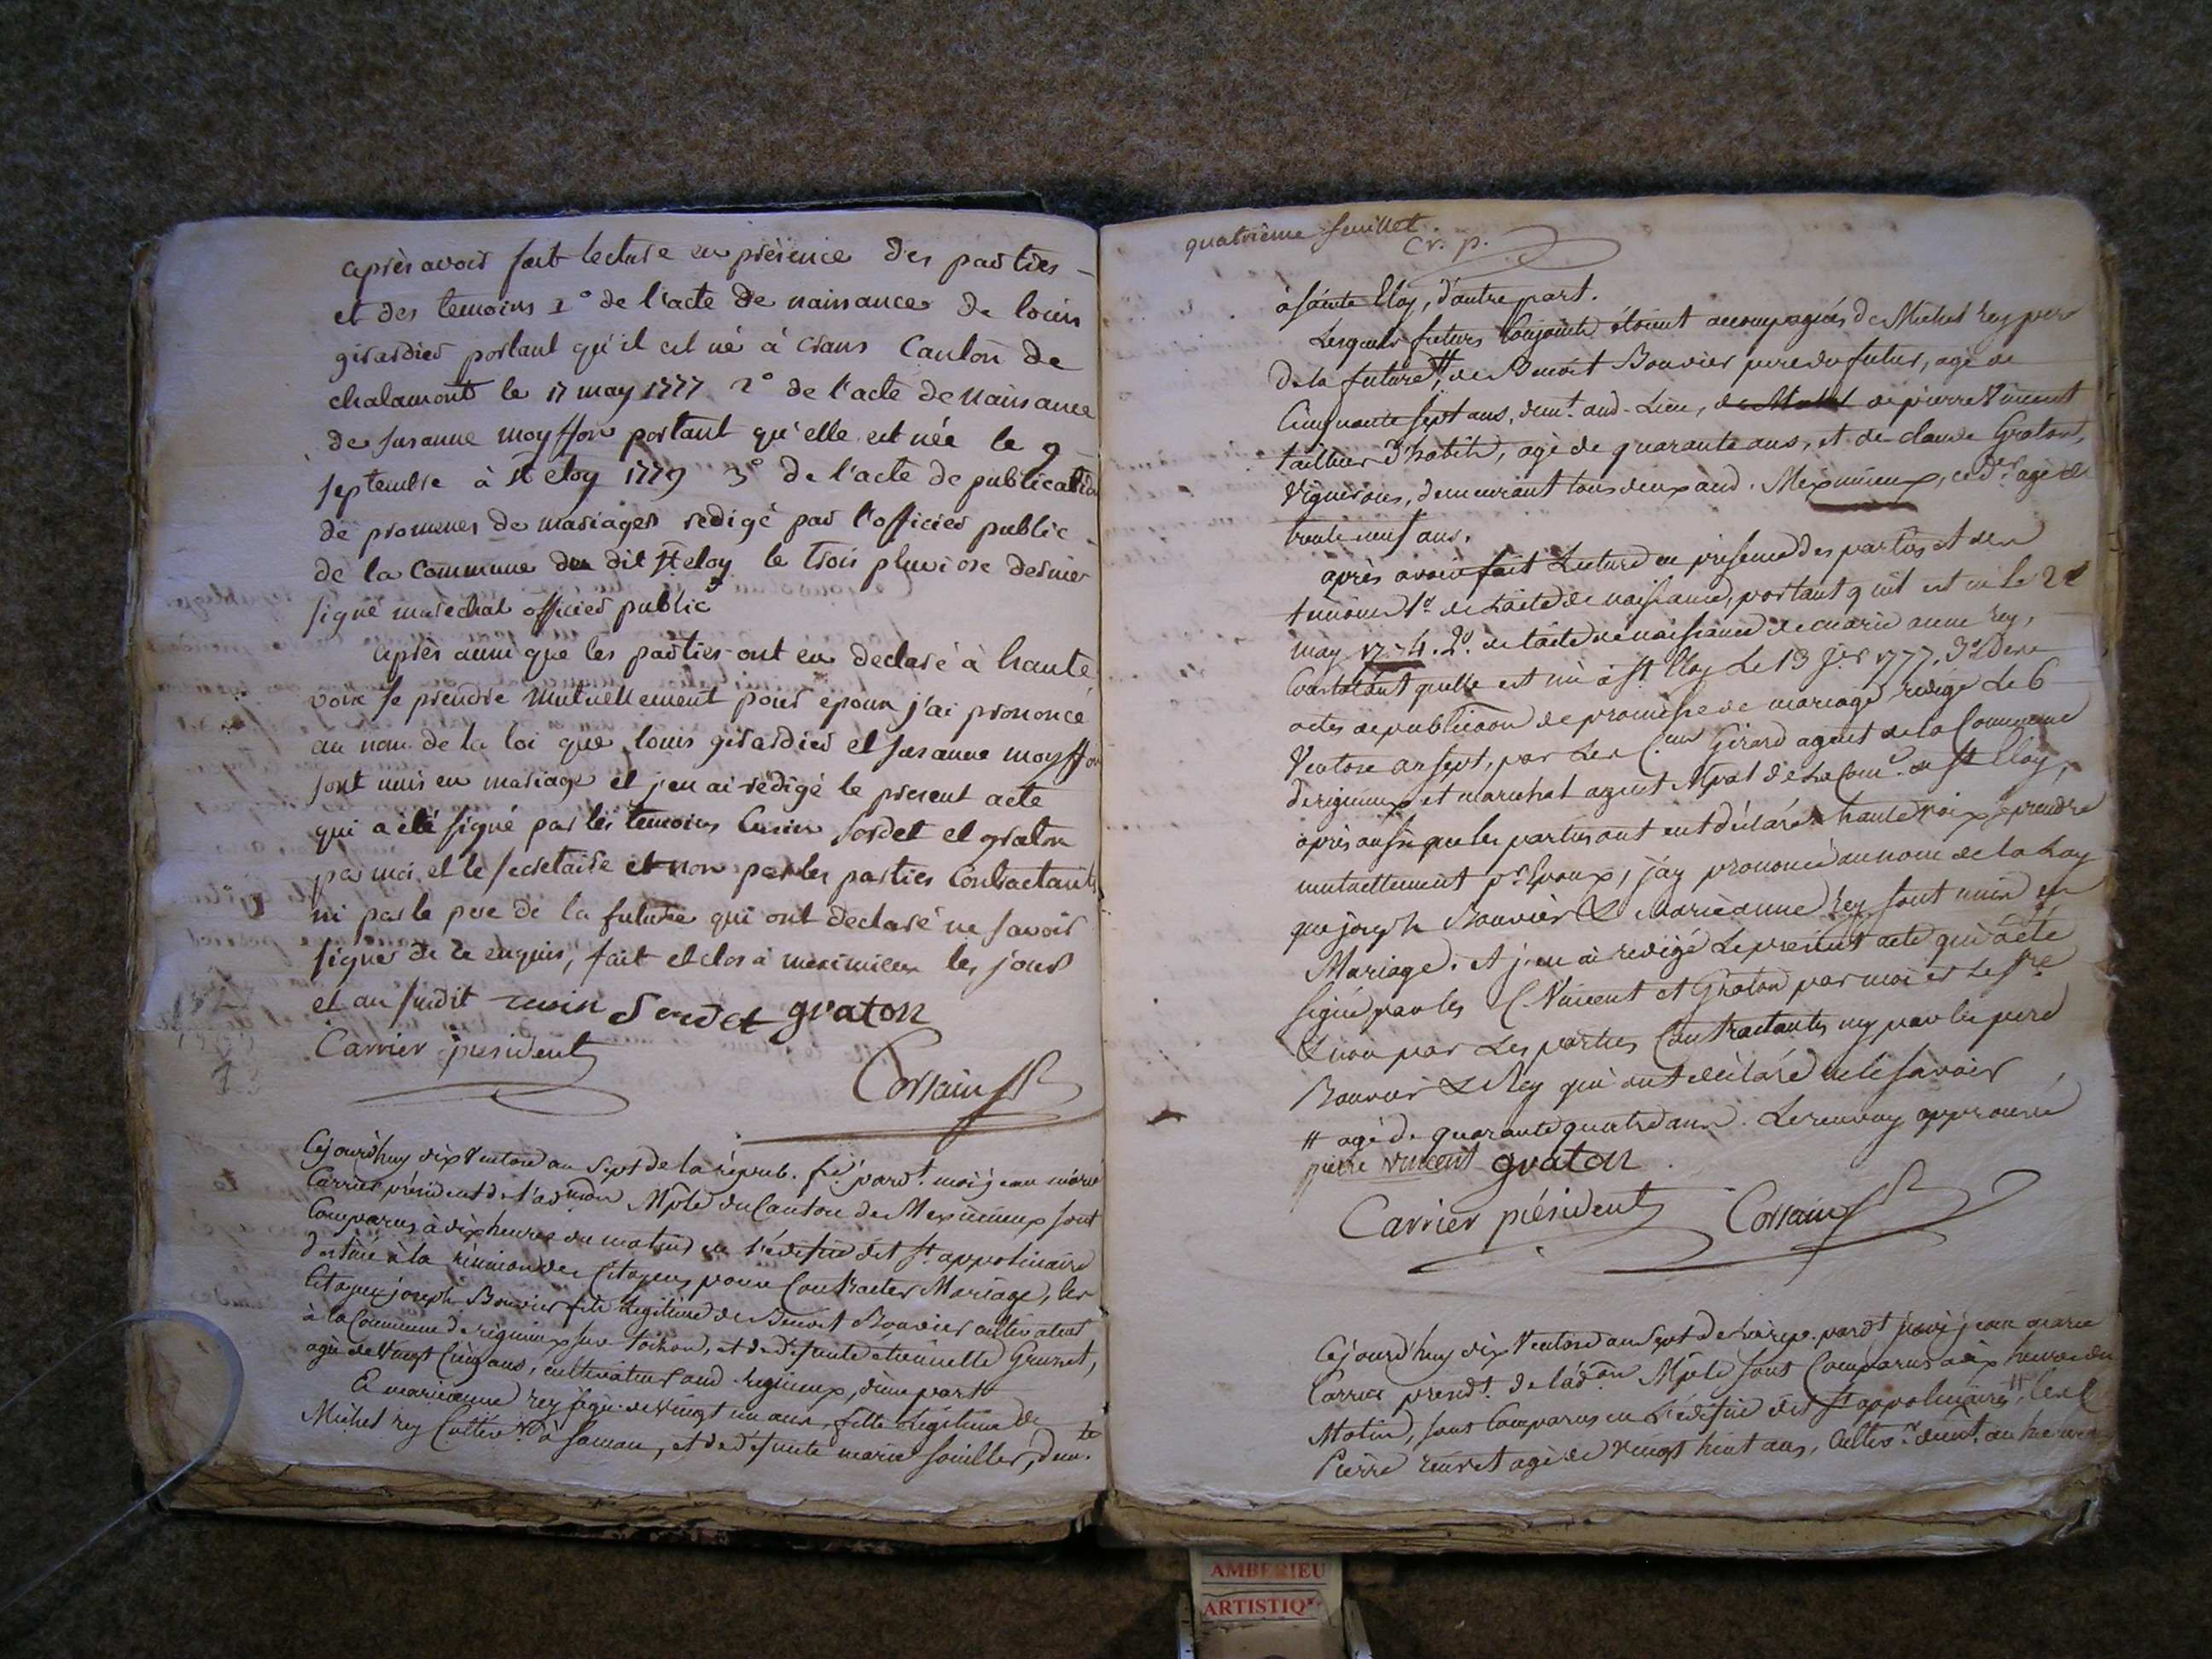 après avoir fait lecture en présence des parties
et des temoins 1° de l'acte de naissance de louis
girardier portant qu'il est né à crans Canton de
chalamont le 17 may 1777 2° de l'acte de naissance
de susanne moyffon portant qu'elle est née le 9
septembre à st eloy 1779 3° de l'acte de publication
de promesses de mariages redigé par l'officier public
de la Commune du dit st eloy le trois pluviose dernier
signé marechal officier public
après aussi que les parties ont eu declaré à haute
voix se prendre mutuellement pour epoux j'ai prononcé
au nom de la loi que louis girardier et susanne moyffon
sont unis en mariage et j'en ai rédigé le present acte
qui a été signé par les temoins Cusin sordet et graton
par moi et le secretaire et non par les parties Contractants
ni par le pere de la future qui ont declaré ne savoir
signer de ce enquis, fait et clos à meximieux les jour
et an susdit cusin Sordet graton
Carrier président
Corsain
Cejourdhuy dix Ventose an Sept de la répub. fse pardt. moi jean marie
Carrier président de l'admon Mple du Canton de Meximieux sont
Comparus à dix heures du matin en l'édifice dit st. appolinaire
destiné à la réunion des Citoyens pour Contracter Mariage, les
Citoyens joseph Bouvier fils Legitime de Benoit Bouvier cultivateur
à la Commune de rigneux sur toison, et de défunte etiennette Grunet,
agé de Vingt Cinq ans, cultivateur aud. rigneux, d'une part
& marieanne rey agée de vingt un ans, fille Legitime de
Michel rey Cultivr. à, et de défunte marie souiller, demte.
quatrième feuillet
cr. p.
à sainte Eloy, d'autre part.
Lesquels futurs Conjoints étoient accompagnés de Michel Rey pere
de la future #, de Benoit Bouvier pere du futur, agé de
Cinquante sept ans, demt. aud. Lieu, de pierre Vincent
tailleur d'habits, agé de quarante ans, et de claude Graton,
Vigneron, demeurant tous deux aud. Meximieux, ced. er agé de
trente neuf ans.
après avoir fait Lecture en presence des parties et des
temoins 1° de l'acte de naissance, portant qu'il est né le 22
may 17-4. 2°. de l'acte de naissance de marie anne rey,
Constatant quelle est née à st. Eloy Le 13 jer 1777. 3° Des
actes de publicaon de promesse de mariage redigé Le 6
Ventose an sept, par Les Cens Girard agent de la Commune
de rigneux et marechal agent Mpal de la Come. de st Eloy,
après aussi que les parties ont eut déclaré à haute voix se prendre
mutuellement pr. Epoux, j'ay prononcé au nom de la Loy
que joseph Bouvier & Marieanne Rey sont unis en
Mariage. et j'en ai redigé Le present acte qui a été
signé par les C. Vincent et Graton par moi et Le sre
& non par Les parties Contractantes ny par les peres
Bouvier & Rey qui ont déclaré ne le savoir
# agé de quarante quatre ans. Le renvoy approuvé
pierre vincent graton
Carrier président Corsain
Cejourd'huy dix Ventose an Sept de la rép. pardt moi jean marie
Carrier presidt. de l'adon Mple sont Comparus à dix heures du
Matin, sont Comparus en L'édifice dit st appolinaire #, Les C
Pierre agé de vingt huit ans, Cultivr. demt. au
AMBERIEU
ARTISTIQ